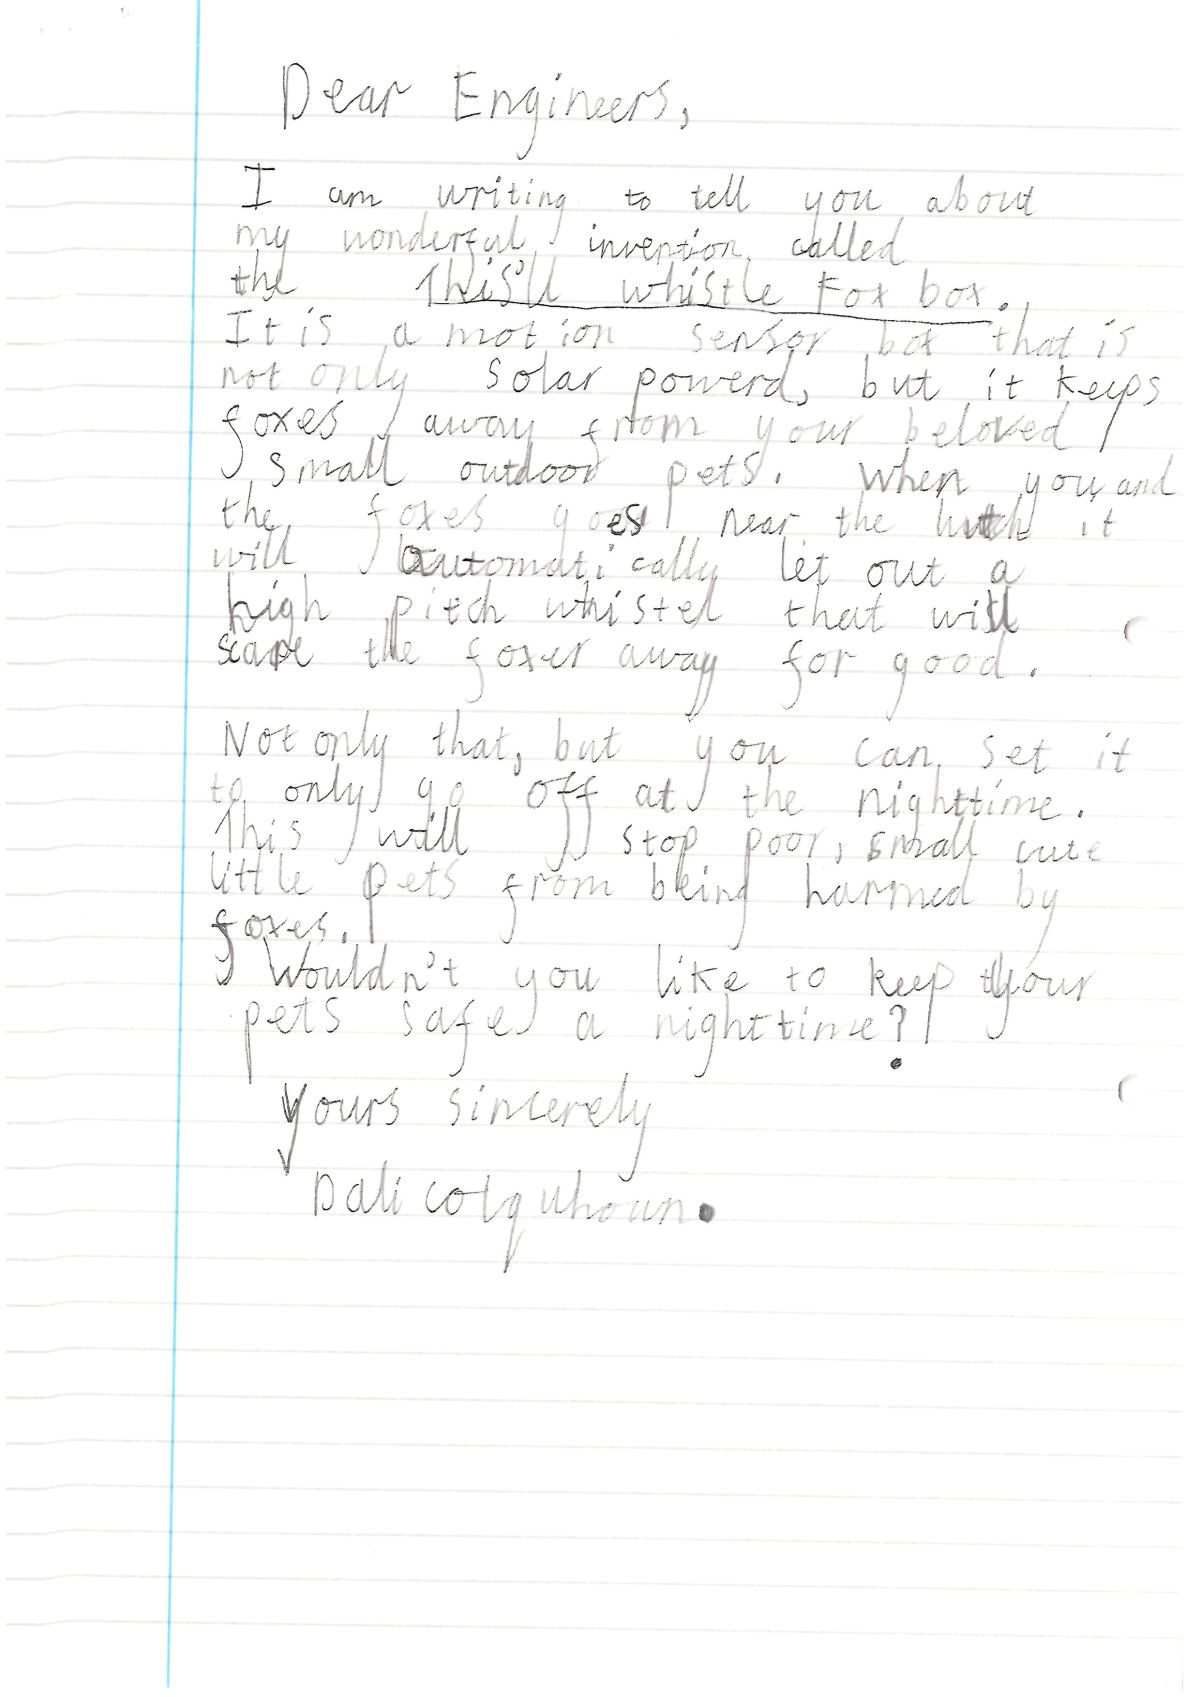 Dear Engineers,
I am writing to tell you about
my wonderful invention called
the This'll whistle Fox box.
It is a motion sensor box that is
not only Solar powerd, but it keeps
foxes away from your beloved
small outdoor pets. When you and
the foxes goes near the hutch it
will automatically let out a
high pitch whistel that will
scare the foxes away for good.
Not only that, but you can set it
to only go off at the nighttime.
This will stop poor, small cute
little pets from being harmed by
foxes.
Wouldn't you like to keep your
pets safe a nighttime?
Yours sincerely
Dali colquhoun.